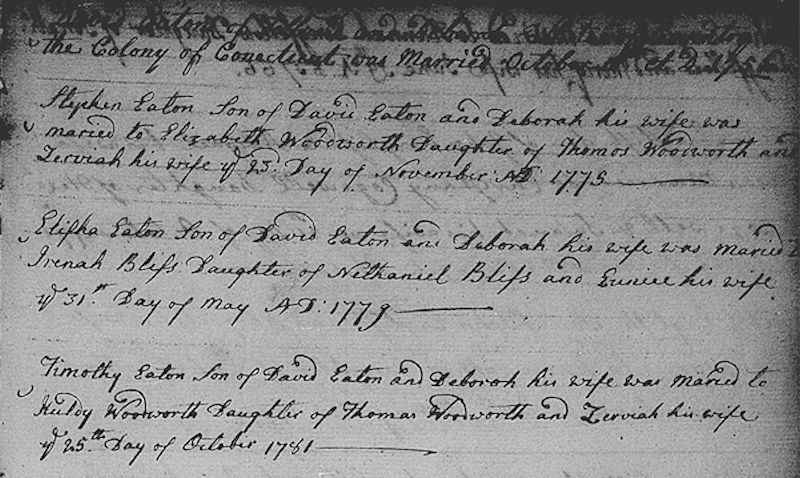 Eaton of
the Colony of Conecticut was Married October
Stephen Eaton Son of David Eaton and Deborah his wife was
maried to Elizabeth Woodworth Daughter of Thomas Woodworth and
Zerviah his wife yᵉ 23ᵈ Day of November AD: 1775
Elisha Eaton Son of David Eaton and Deborah his wife was maried
Irenah Bliss Daughter of Nethaniel Bliss and Eunice his wife
yᵉ 31ˢᵗ Day of May AD: 1779
Timothy Eaton Son of David Eaton and Deborah his wife was maried to
Huldy Woodworth Daughter of Thomas Woodworth and Zerviah his wife
yᵉ 25ᵗʰ Day of October 1781